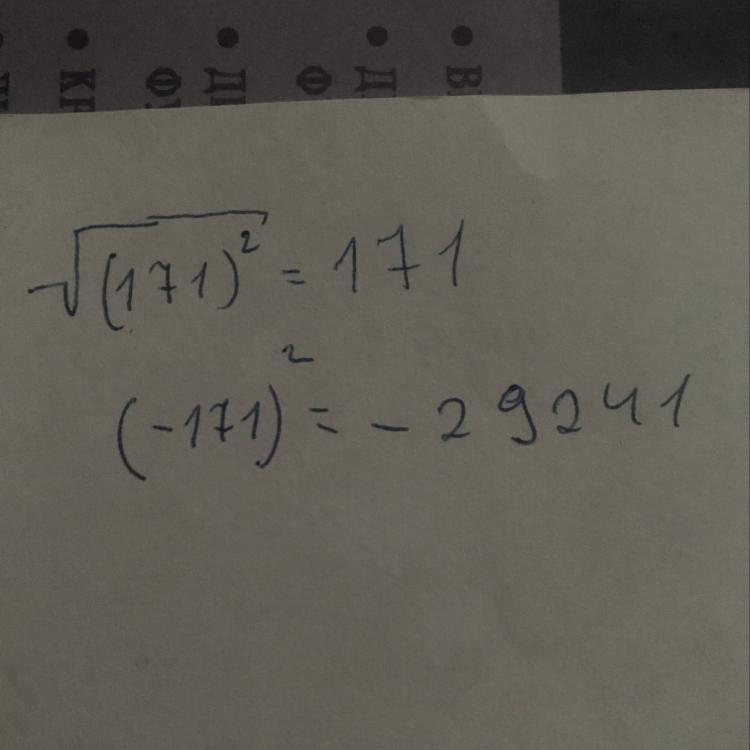 • КР • ДІ • Д • В
Ф Ф
√(171)² = 171
(-171)² = - 29241